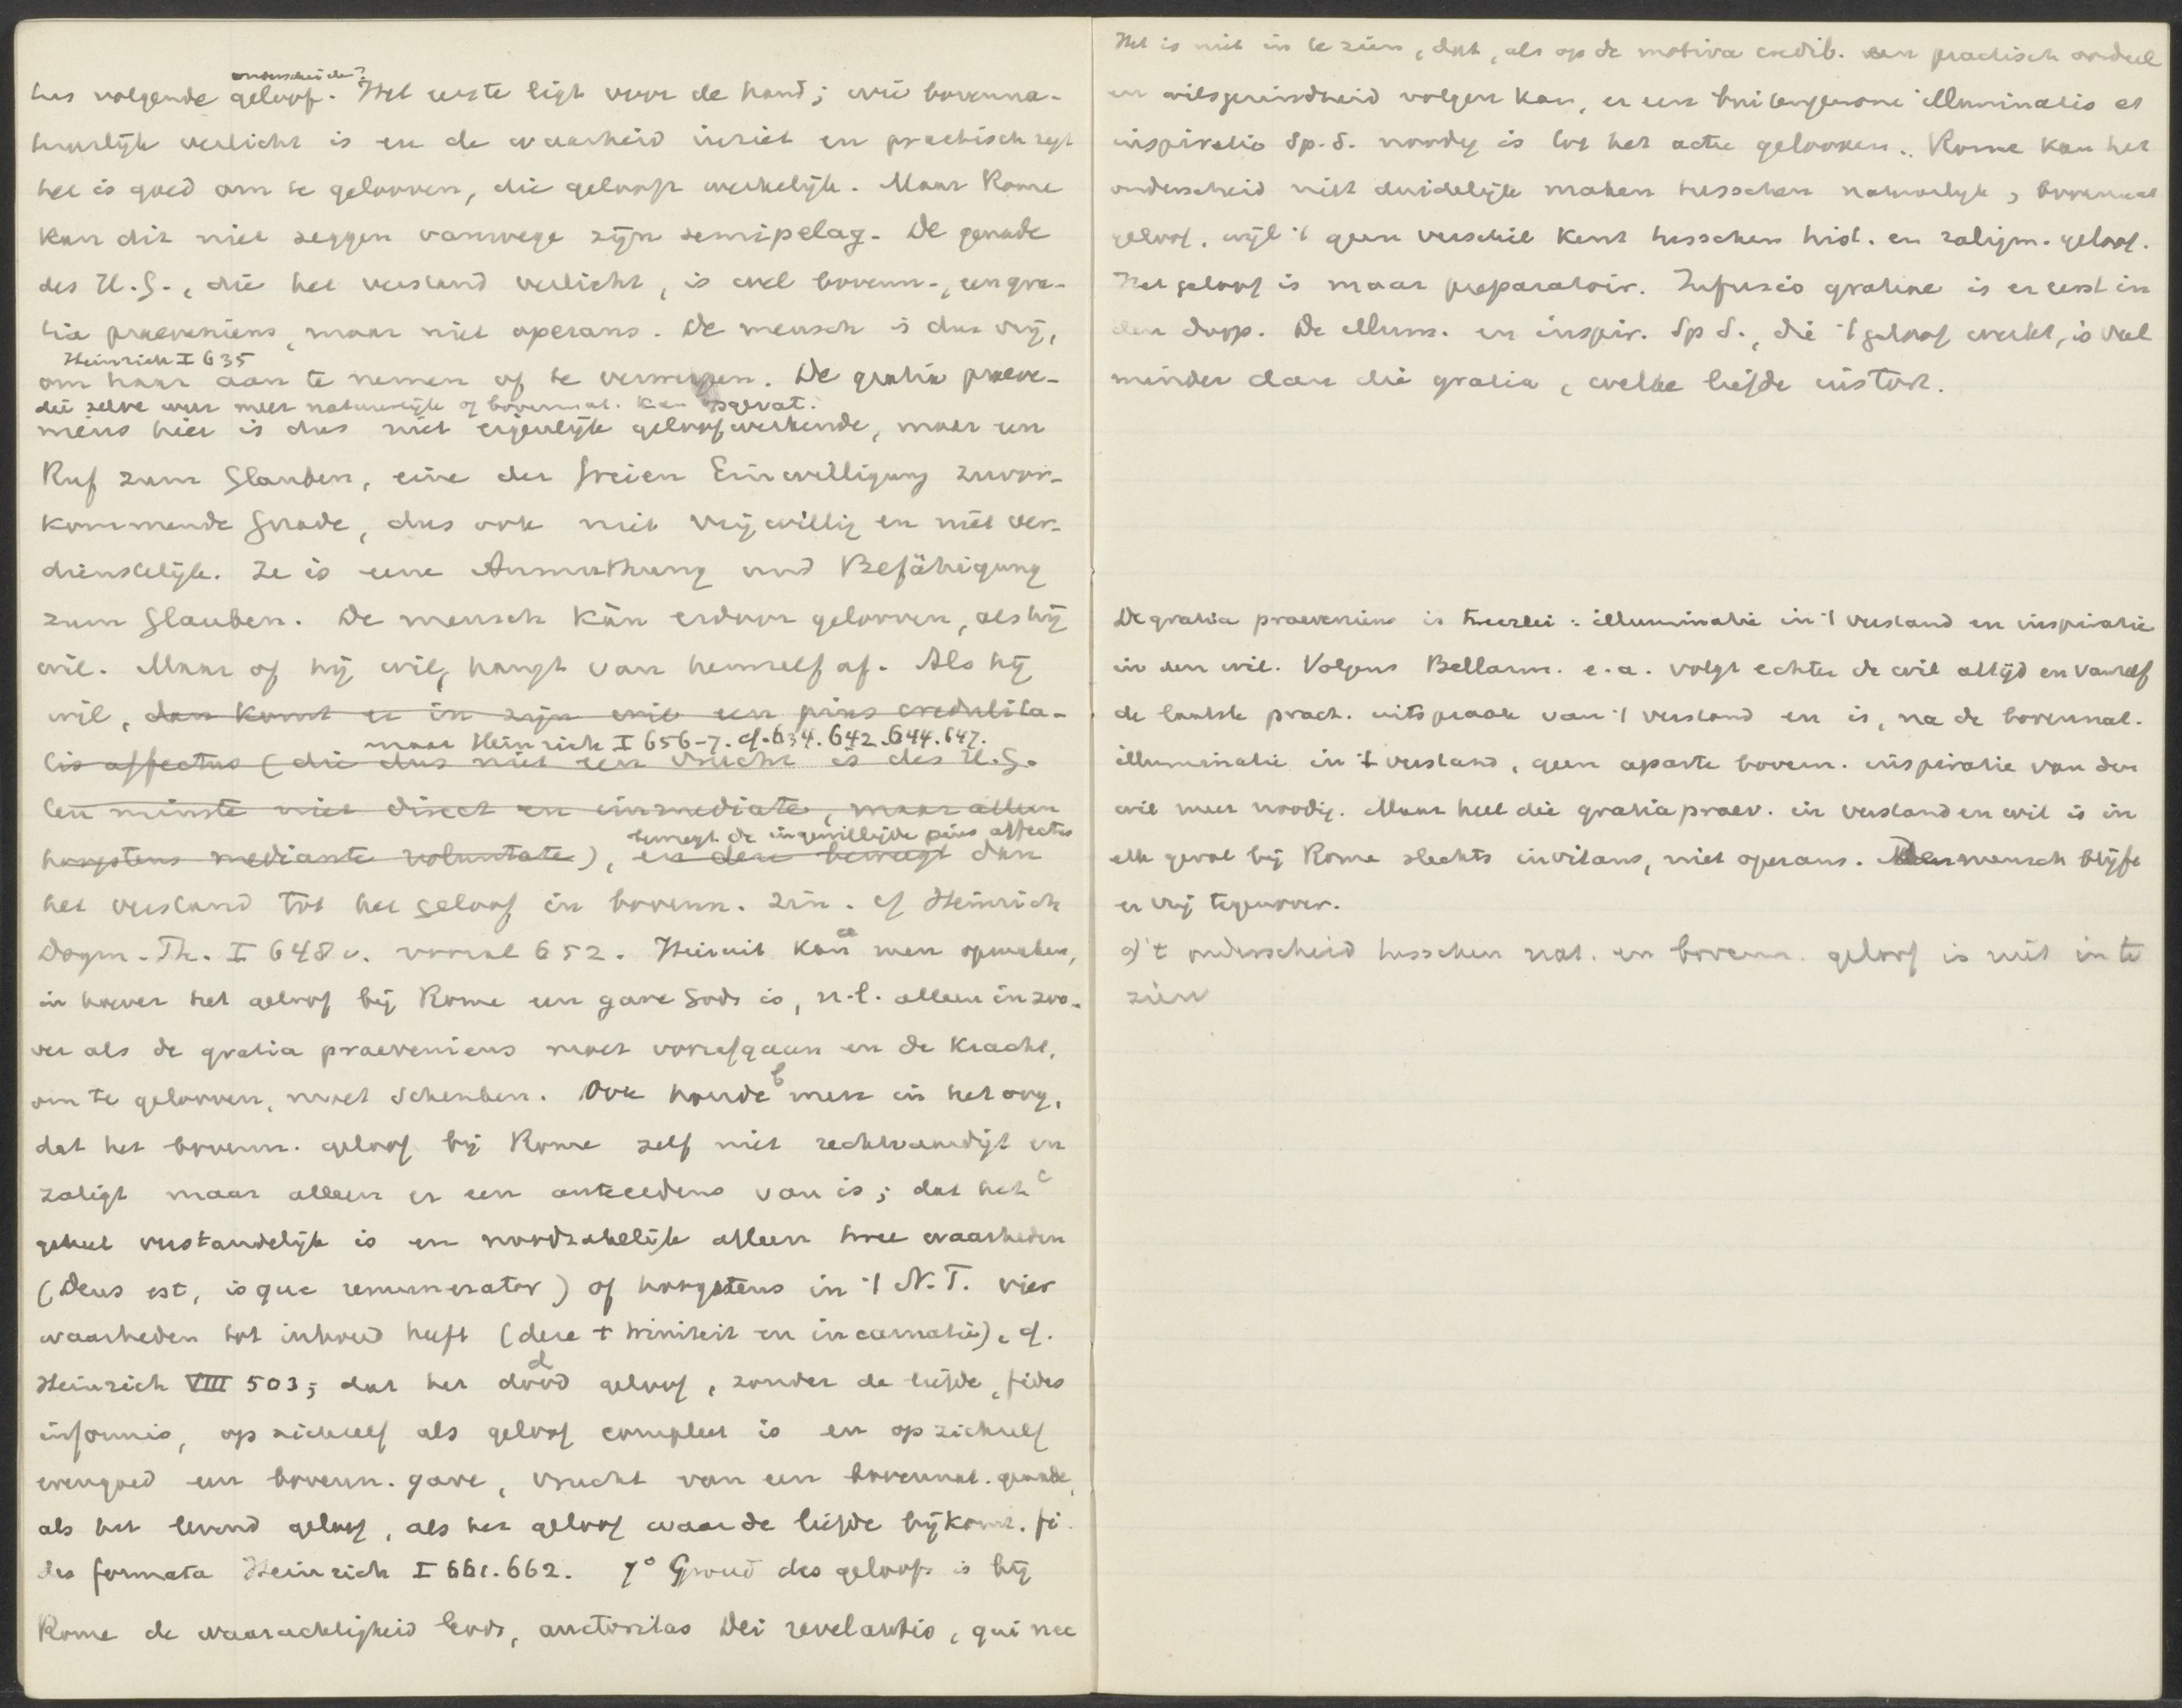 onderscheiden?
het volgende geloof. Het eerste ligt voor de hand; wie bovenna-
tuurlijk verlicht is en de waarheid inziet en practisch zegt
het is goed om te gelooven, die gelooft werkelijk. Maar Rome
kan dit niet zeggen vanwege zijn semipelag. De genade
des H.G., die het verstand verlicht, is wel bovenn., een gra-
tia praeveniens, maar niet operans. De mensch is dus vrij,
Heinrich I 635
om haar aan te nemen of te verwerpen. De gratia praeve-
die zelve weer meer natuurlijk of bovennat. kan opgevat.
niens hier is dus niet eigenlijk geloofwerkende, maar een
Ruf zum Glauben, eine der freien Einwilligung zuvor-
kommende Gnade, dus ook niet vrijwillig en niet ver-
dienstelijk. Ze is eene Anmuthung und Befähigung
zum Glauben. De mensch kàn erdoor gelooven, als hij
wil. Maar of hij wil, hangt van hemzelf af. Als hij
wil, dan komt er in zijn wil een pius credulita-
maar Heinrich I 656-7. cf. 634. 642. 644. 647.
tis affectus (die dus niet een vrucht is des H.G.
ten minste niet direct en immediate, maar alleen
beweegt de ingewilligde pius affectus
hoogstens mediante voluntate), en deze beweegt dan
het verstand tot het geloof in bovenn. zin. cf Heinrich
Dogm. Th. I 648 v. vooral 652. Hieruit kan a men opmaken,
in hoever het geloof bij Rome een gave Gods is, n.l. alleen in zoo-
ver als de gratia praeveniens moet voorafgaan en de kracht,
om te gelooven, moet schenken. Ook houde b men in het oog,
dat het bovenn. geloof bij Rome zelf niet rechtvaardigt en
zaligt maar alleen er een antecedens van is; dat het c
geheel verstandelijk is en noodzakelijk alleen twee waarheden
(Deus est, isque remunerator) of hoogstens in 't N.T. vier
waarheden tot inhoud heeft (deze + triniteit en incarnatie), cf.
Heinrich VIII 503; dat het d dood geloof, zonder de liefde, fides
informis, op zichzelf als geloof compleet is en op zichzelf
evengoed een bovenn. gave, vrucht van een bovennat. genade,
als het levend geloof, als het geloof waar de liefde bijkomt. fi-
des formata Heinrich I 661. 662. 7° Grond des geloofs is bij
Rome de waarachtigheid Gods, auctoritas Dei revelantis, qui nec
Het is niet in te zien, dat, als op de motiva credib. een practisch oordeel
en wilsgezindheid volgen kan, er een buitengewone illuminatio et
inspiratio Sp. S. noodig is tot het actu gelooven. Rome kan het
onderscheid niet duidelijk maken tusschen natuurlijk, bovennat
geloof. wijl 't geen verschil kent tusschen hist. en zaligm. geloof.
Het geloof is maar preparatoir. Infusio gratiae is er eerst in
den doop. De illum. en inspir. Sp S., die 't geloof werkt, is veel
minder dan die gratia, welke liefde instort.
De gratia praeveniens is tweeërlei: illuminatie in 't verstand en inspiratie
in den wil. Volgens Bellarm. e.a. volgt echter de wil altijd en vanzelf
de laatste pract. uitspraak van 't verstand en is, na de bovennat.
illuminatie in 't verstand, geen aparte bovenn. inspiratie van den
wil meer noodig. Maar heel die gratia praev. in verstand en wil is in
elk geval bij Rome slechts invitans, niet operans. De mensch blijft
er vrij tegenover.
a) 't onderscheid tusschen nat. en bovenn. geloof is niet in te
zien